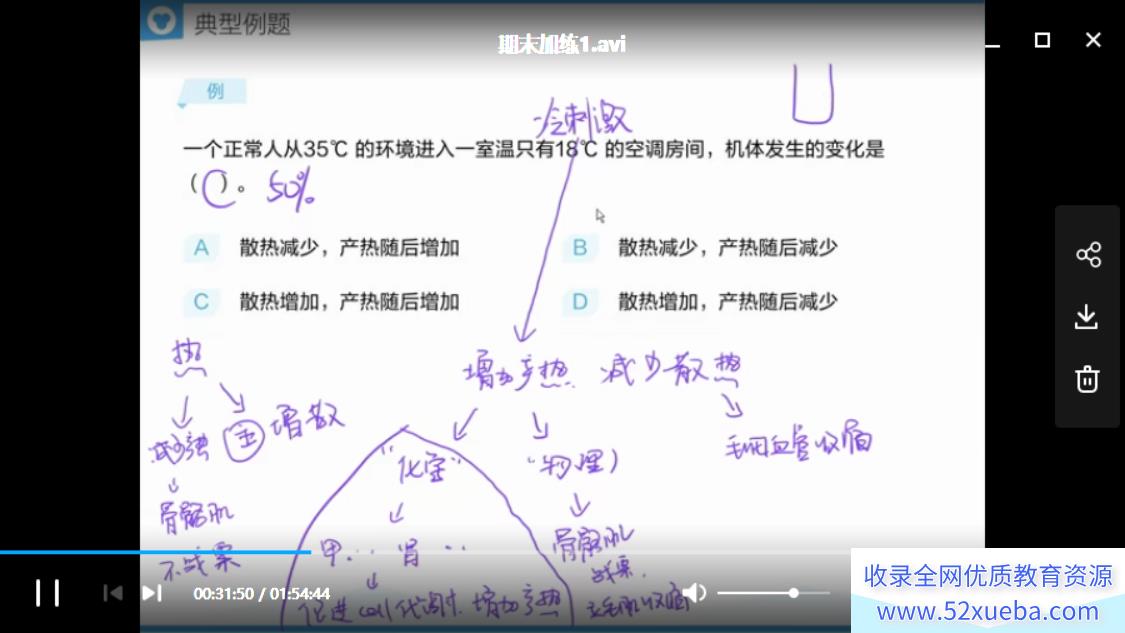 典型例题
期末加练1.avi
例
冷刺激
一个正常人从35℃ 的环境进入一室温只有18℃ 的空调房间，机体发生的变化是
（C）。 50%
A 散热减少，产热随后增加
B 散热减少，产热随后减少
C 散热增加，产热随后增加
D 散热增加，产热随后减少
热
增加产热 减少散热
减少产热 主 增散
毛细血管收缩
"化学" "物理)
骨骼肌
不战栗
甲... 肾 ..
骨骼肌
战栗.
促进cell代谢 增加产热
立毛肌收缩
00:31:50 / 01:54:44
收录全网优质教育资源
www.52xueba.com